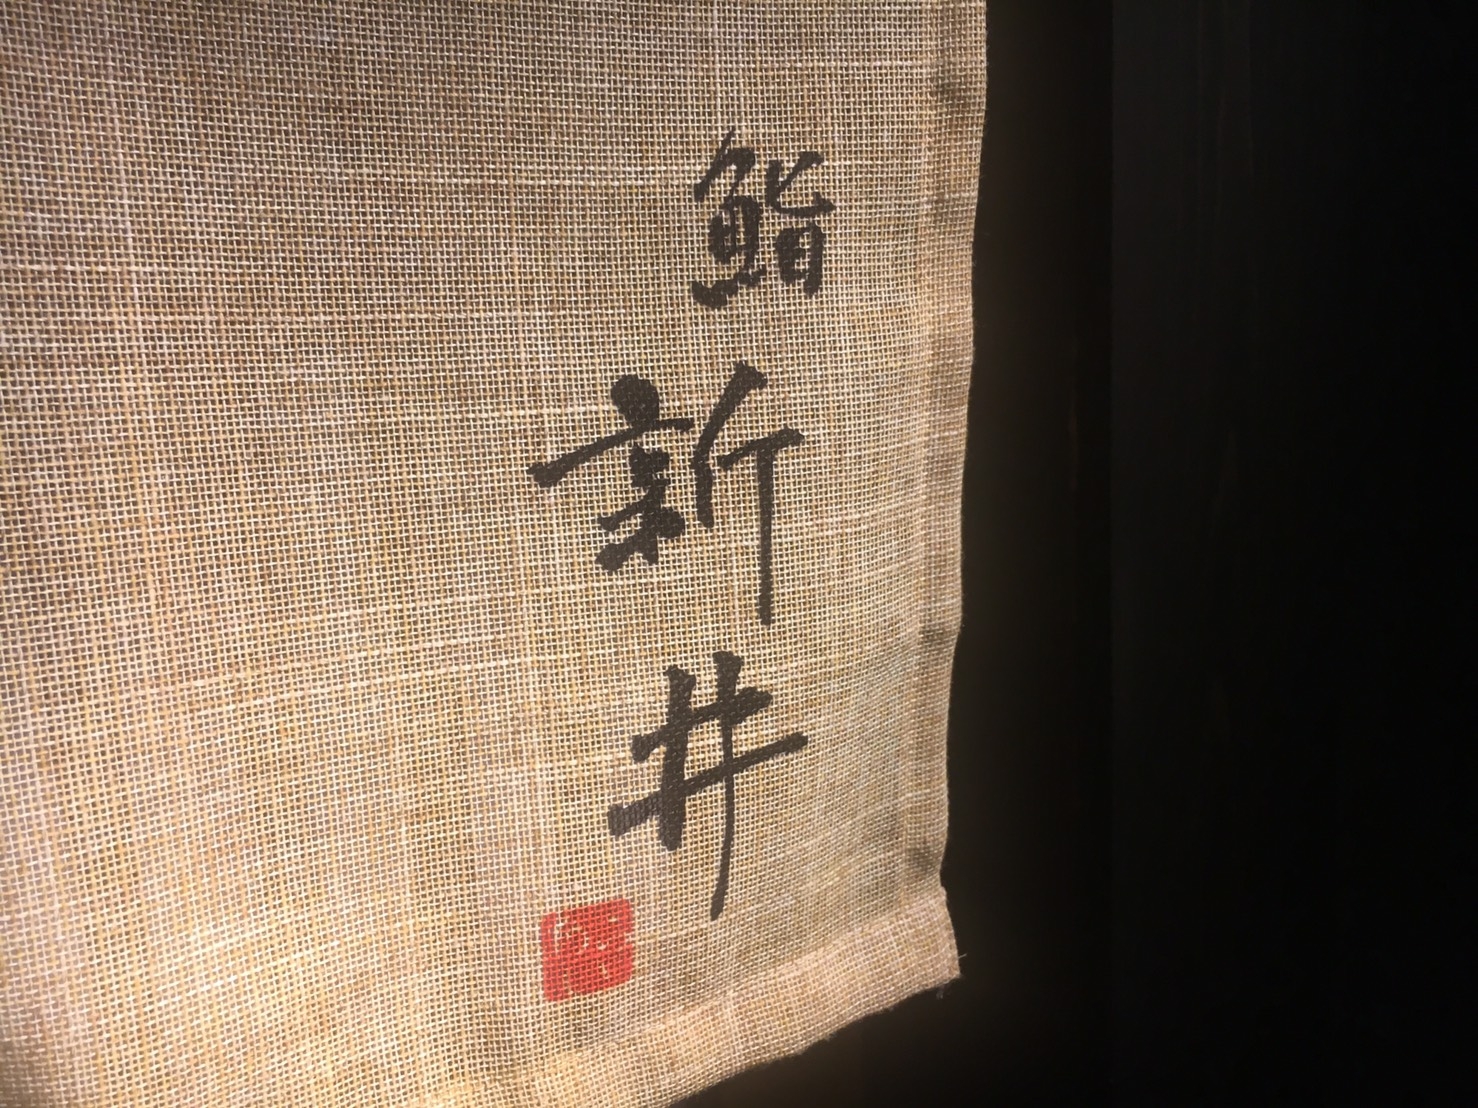 鮨
新
井